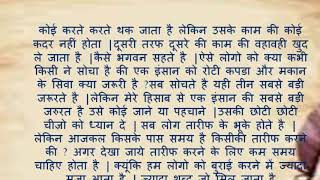 कोई करते करते थक जाता है लेकिन उसके काम की कोई
कदर नहीं होता |दूसरी तरफ दूसरे की काम की वहावही खुद
ले जाता है |कैसे भगवन सहते है |ऐसे लोगो को क्या कभी
किसी ने सोचा है की एक इंसान को रोटी कपडा और मकान
के सिवा क्या जरूरी है ?सब सोचते है यही तीन सबसे बडी
जरूरते है |लेकिन मेरे हिसाब से एक इंसान की सबसे बडी
जरुरत है उसे कोई जाने या पहचाने |उसकी छोटी छोटी
चीजो को ध्यान दे |सब लोग तारीफ के भूके होते है |
लेकिन आजकल किसके पास समय है किसीकी तारीफ करने
की ? अगर देखा जाये तारीफ करने के लिए कम समय
चाहिए होता है | क्यूंकि हम लोगो को बुराई करने में ज्यादा
मजा आता है | ज्यादा शब्द जो मिल जाता है